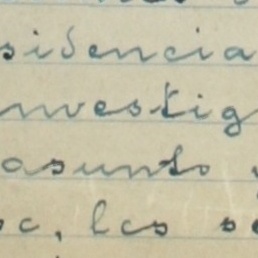 sidencia
nvestig
asunto y
sc, les se